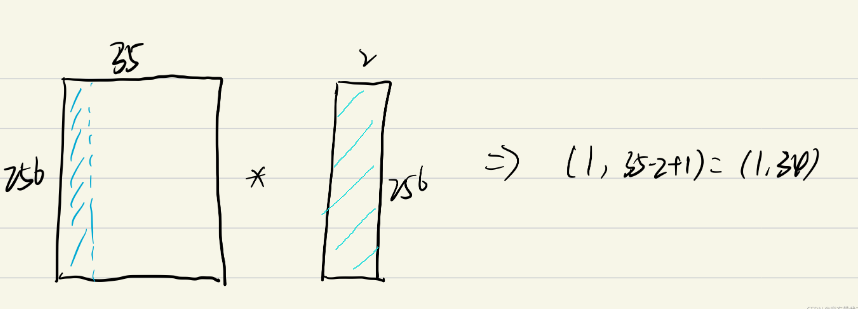 35
2
256
*
256
=> (1, 35-2+1) = (1,34)